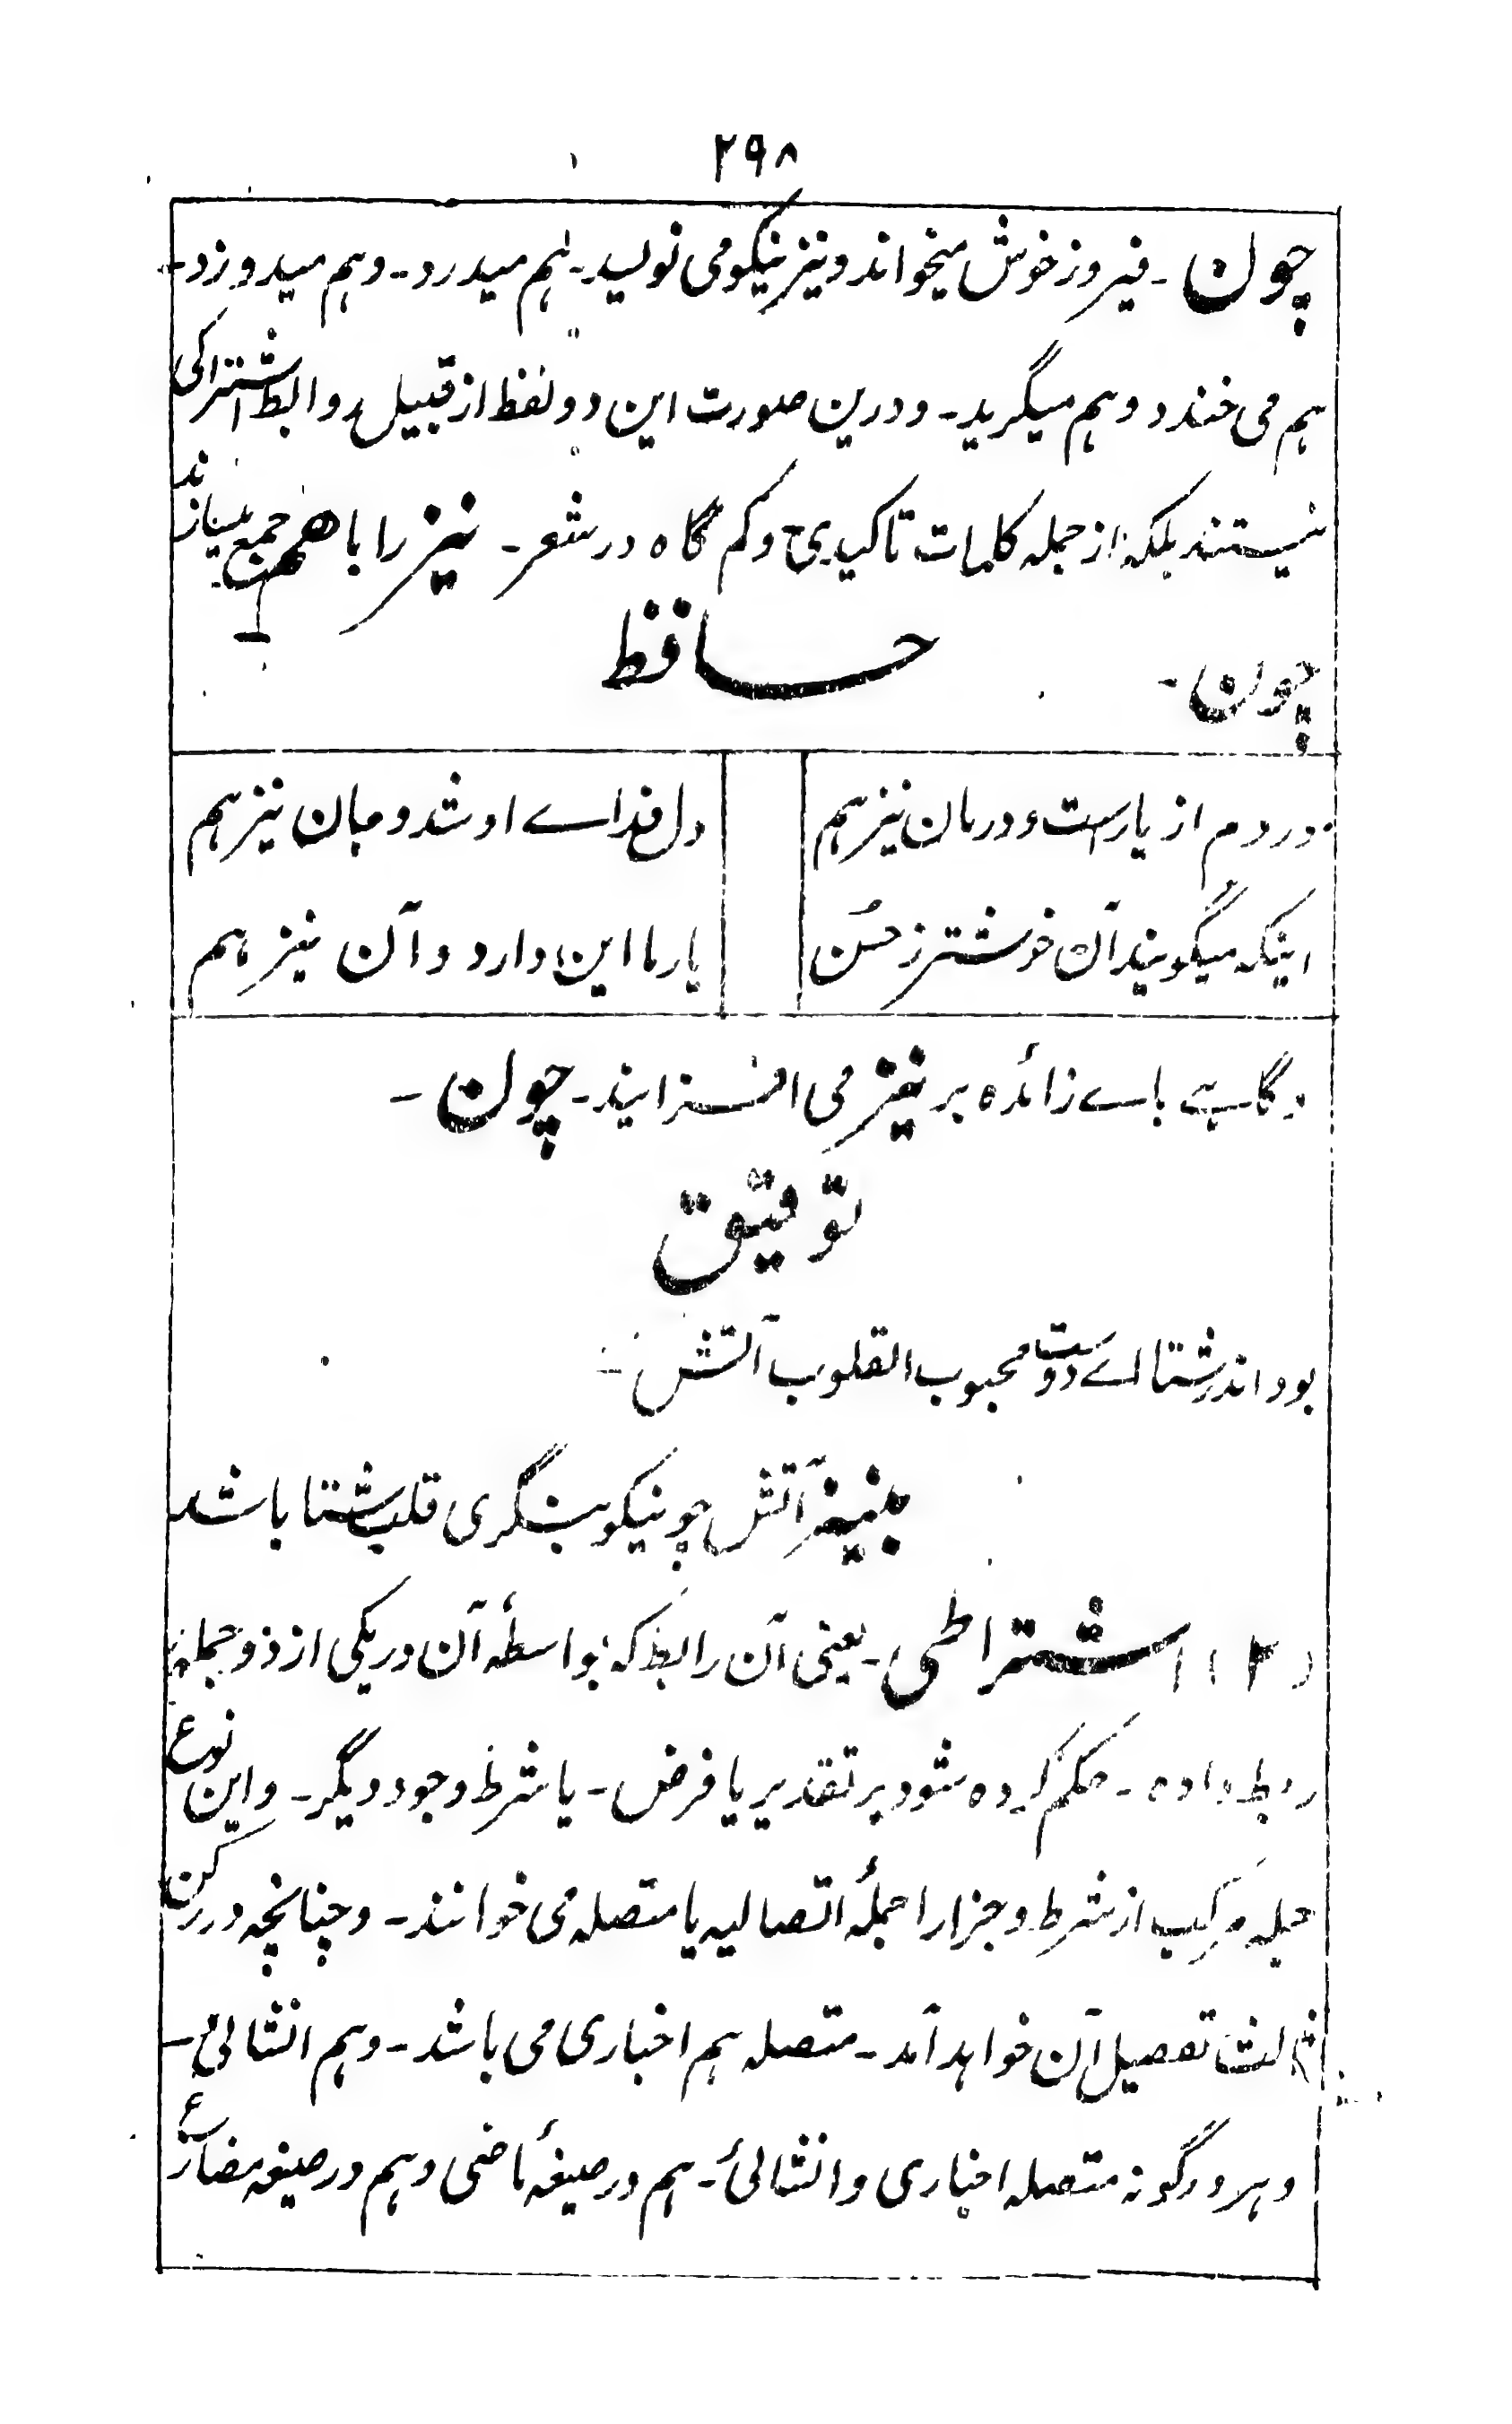 ۲۹۸
چون ۔ فیروز خوش میخواند و نیز نیکو می نویسد ۔ ہم میدرد ۔ وہم میدوزد ۔
ہم می خندد و ہم میگرید ۔ و درین صورت این دو لفظ از قبیل روابط اشتراکی
نیستند بلکہ از جملہ کلمات تاکیدی و کم گاہ در شعر ۔ نیز را با ھم جمع میسازند
چون ۔
حافظ
دردم از یارست و درمان نیز ہم
دل فداے او شد و جان نیز ہم
اینکہ میگویند آن خوشتر ز حسُن
یار ما این دارد و آن نیز ہم
و گاہے باے زائدہ بر نیز می افزایند ۔ چون ۔
توفیق
بود اندر شتا اے دوست محبوب القلوب آتش ۔
بنیز آتش چو نیکو بنگری قلب شتا باشد
(۲) اشتراطی ۔ یعنی آن رابط کہ بواسطۂ آن در یکی از دو جملہ
ربط دادہ ۔ حکم کردہ شود بر تقدیر یا فرض ۔ یا شرط وجود دیگر ۔ و این نوع
جملہ مرکب از شرط و جزا را جملۂ اتصالیہ یا متصلہ می خوانند ۔ و چنانچہ در رکن
ثالث تفصیل آن خواہد آمد ۔ متصلہ ہم اخباری می باشد ۔ وہم انشائی ۔
و ہر دو گونہ متصلہ اخباری و انشائی ۔ ہم در صیغۂ ماضی و ہم در صیغہ مضارع